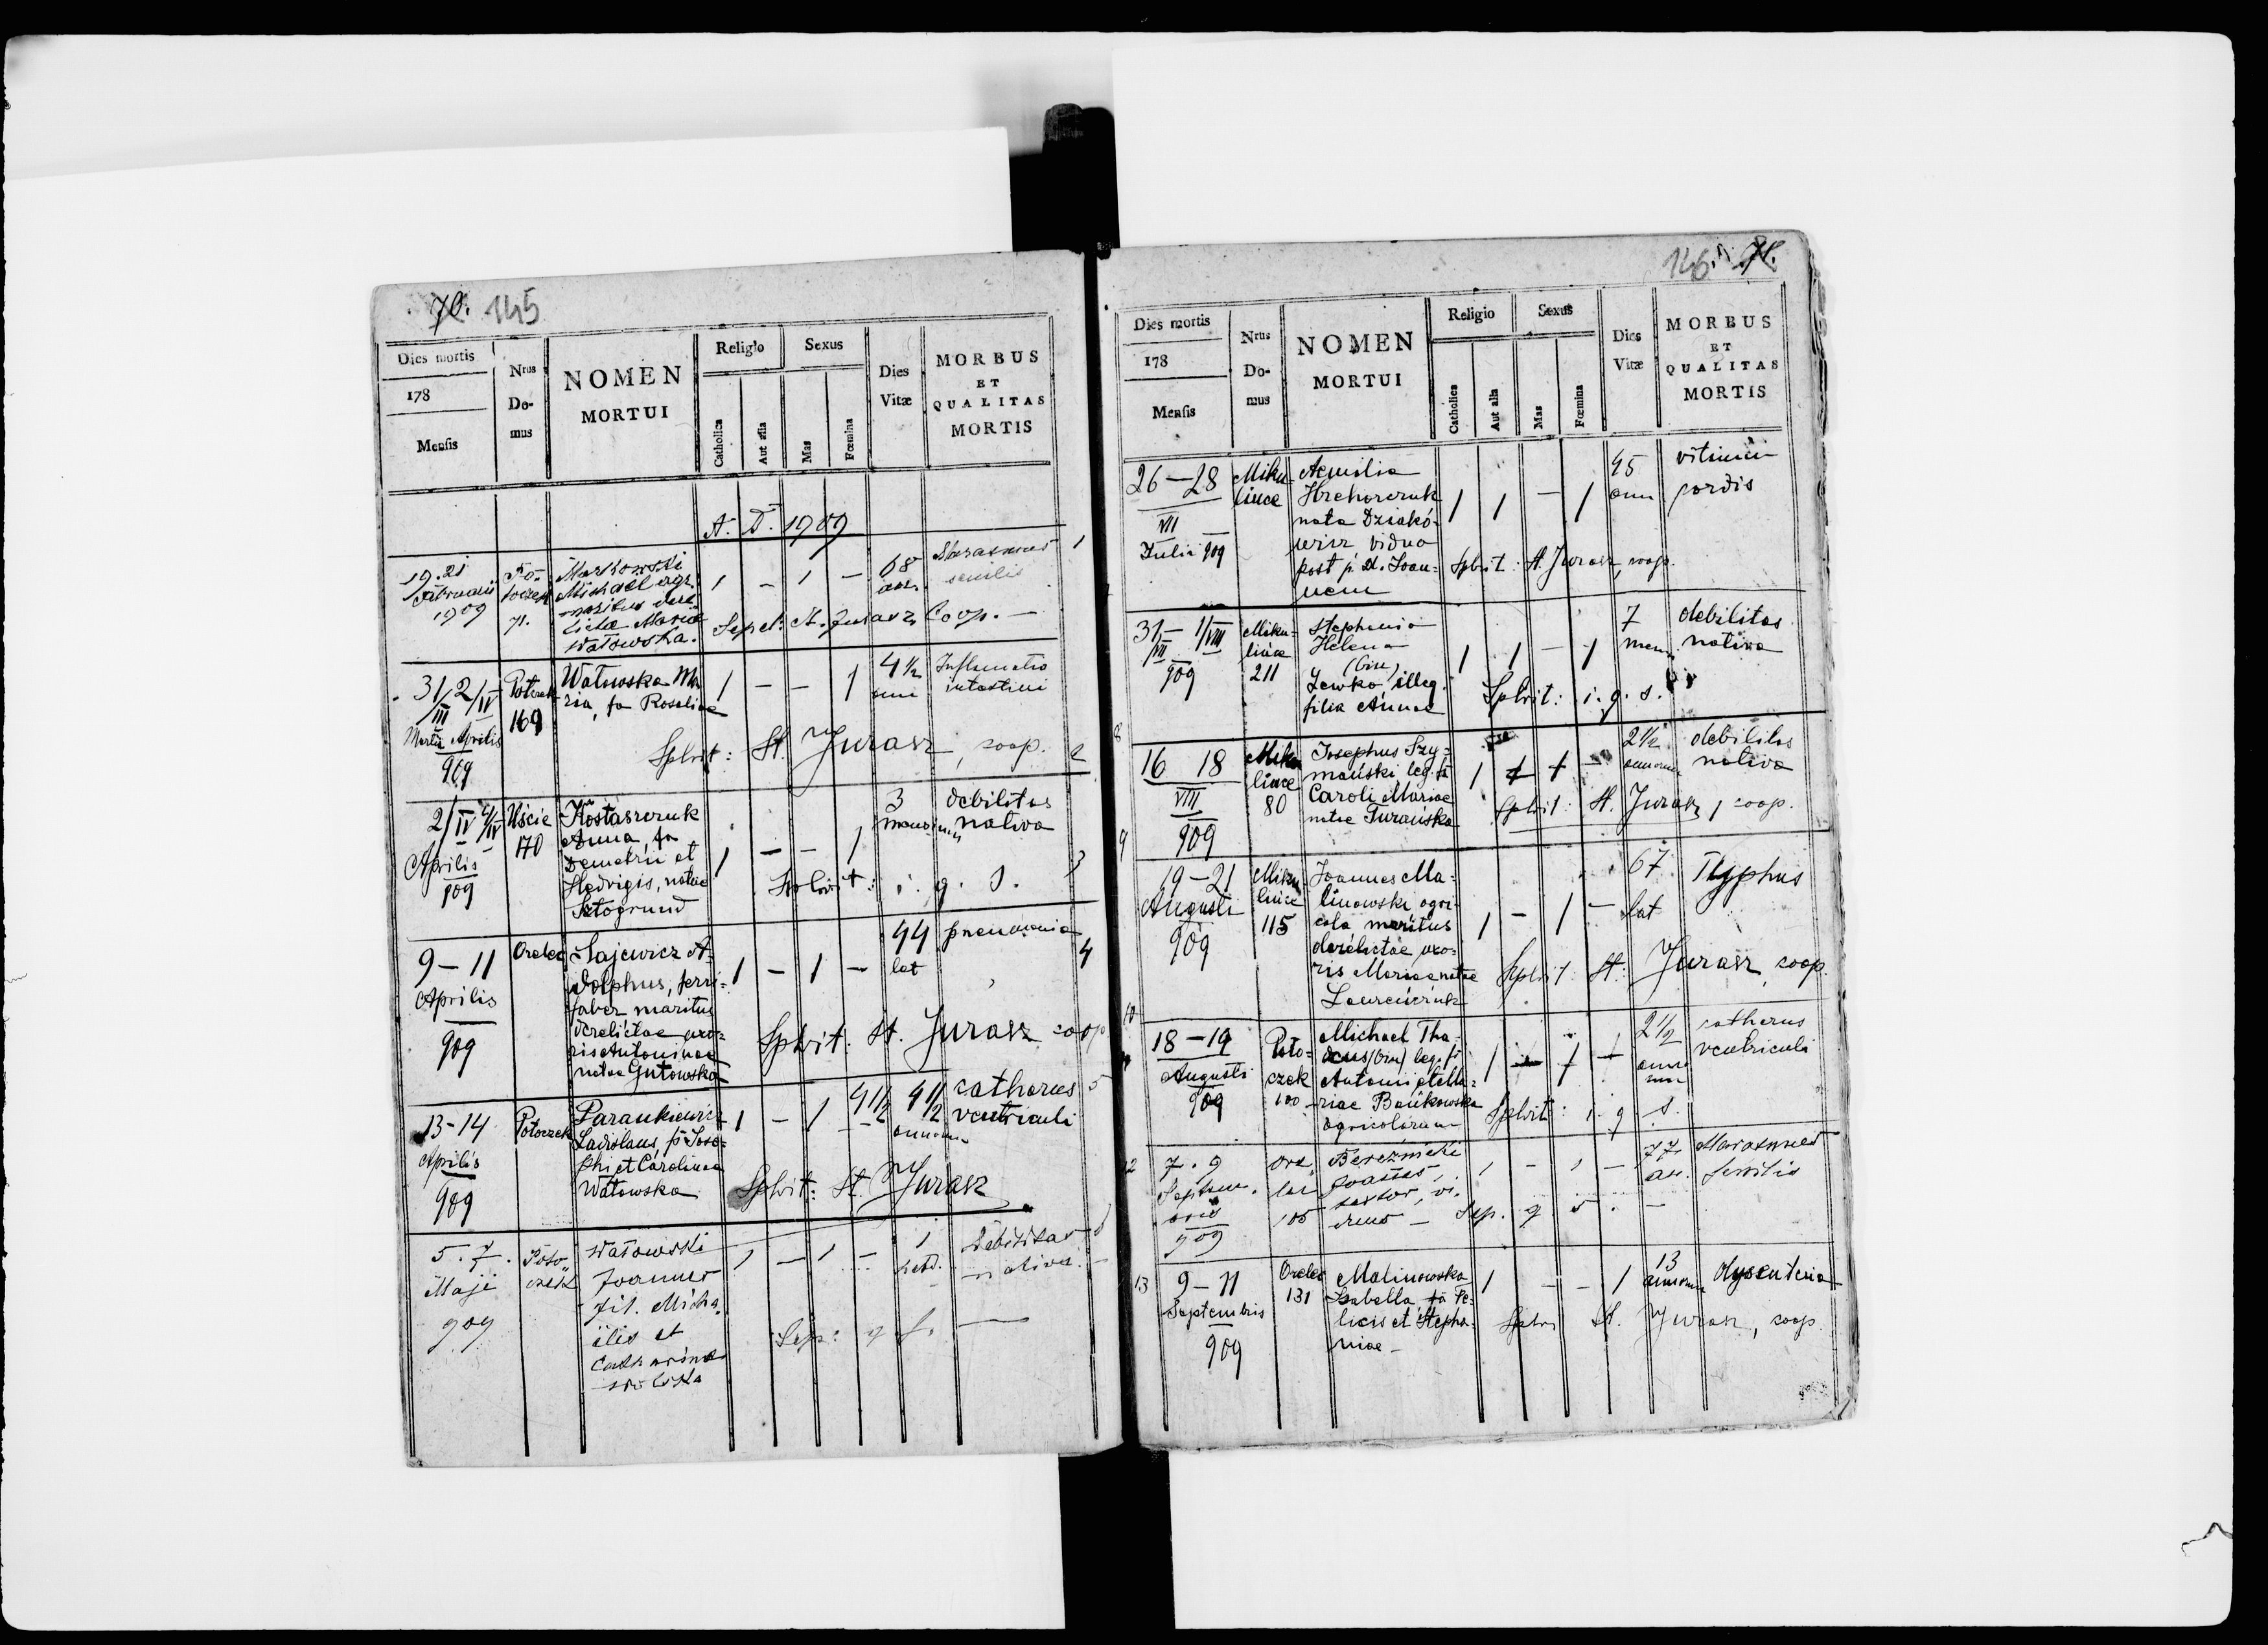 70. 145
Dies mortis
178
Mensis
Nrus
Do-
mus
NOMEN
MORTUI
Religio
Catholica
Aut alia
Sexus
Mas
Fœmina
Dies
Vitæ
MORBUS
ET
QUALITAS
MORTIS
A. D. 1909
19. 21
Februarii
1909
Po-
toczek
71.
Markowski
Michael agr.
maritus dere
lictae Mariae
Watowska.
1 - 1 -
68
ann.
Marasmus
senilis
1
Sepel: St. Jurasz Coop. -
31/III 2/IV
Martii Aprilis
909
Potoczek
169
Watowska Ma
ria, fa Rosaliae
1 - - 1
4 1/2
anni
Inflamatio
intestini
Splvit: St. Jurasz, coop. 2
2/IV 4/IV
Aprilis
909
Uście
170
Kostaszczuk
Anna, fa
Demetrii et
Hedvigis, natae
Sztogrund
1 - - 1
3
mensium
debilitas
nativa
Splvit: i. q. s. 3
9 - 11
Aprilis
909
Orelec
Sajewicz A-
dolphus, ferri-
faber maritus
derelictae uxo-
ris Antoninae
natae Gutowska
1 - 1 -
44
lat
pneumonia
4
Splvit: St. Jurasz coop
13-14
Aprilis
909
Potoczek
Parankiewicz
Ladislaus fs Jose-
phi et Carolinae
Watowska
1 - 1 -
4 1/2 4 1/2
annorum
catharus
ventriculi
5
Splvit: St. Jurasz
5. 7.
Maji
909
Poto-
czek
Watowski
Joannes
fil. Micha-
elis et
Catharinae
1 - 1 -
1
hebd.
Debilitas
nativa.
6
Sep: q s. -
146. 71.
Dies mortis
178
Mensis
Nrus
Do-
mus
NOMEN
MORTUI
Religio
Catholica
Aut alia
Sexus
Mas
Fœmina
Dies
Vitæ
MORBUS
ET
QUALITAS
MORTIS
26-28
VII
Julii 909
Miku-
lince
Aemilia
Hrehorczuk
nata Dziakó-
wicz vidua
post p. d. Joan-
nem
1 1 - 1
45
ann
vitium
cordis
Splvit: St. Jurasz, coop.
31/VII - 1/VIII
909
Miku-
lince
211
Stephania
Helena
(bin)
Lewko, illeg.
filia Annae
1 1 - 1
7
mens.
debilitas
nativa
Splvit: i. q. s.
8
16 18
VIII
909
Miku
lince
80
Josephus Szy-
mański leg. fs
Caroli Mariae
natae Turańska
2 1/2
annorum
debilitas
nativa
Splvit: St. Jurasz, coop.
9
19-21
Augusti
909
Miku
lince
115
Joannes Ma-
linowski agri-
cola maritus
derelictae uxo-
ris Mariae natae
1 - 1 -
67
lat
Typhus
Splvit: St: Jurasz, coop.
10
18-19
Augusti
909
Poto-
czek
100
Michael Tha-
deus (bin) leg. fs
Antonii et Ma-
riae Bańkowska
agricolarum
2 1/2
anno
rum
catharus
ventriculi
Splvit: i. q. s.
12
7. 9
Septem.
bris
909
Ore.
lec
105
Bereznicki
sartor, vi.
duus -
1 - 1 -
77
an.
Marasmus
senilis
Sep. q s. -
13
9-11
Septembris
909
Orelec
131
Malinowska
Isabella, fa Fe-
licis et Stepha-
niae -
1 - - 1
13
annorum
dysenteria
Splvi St. Jurasz, coop.